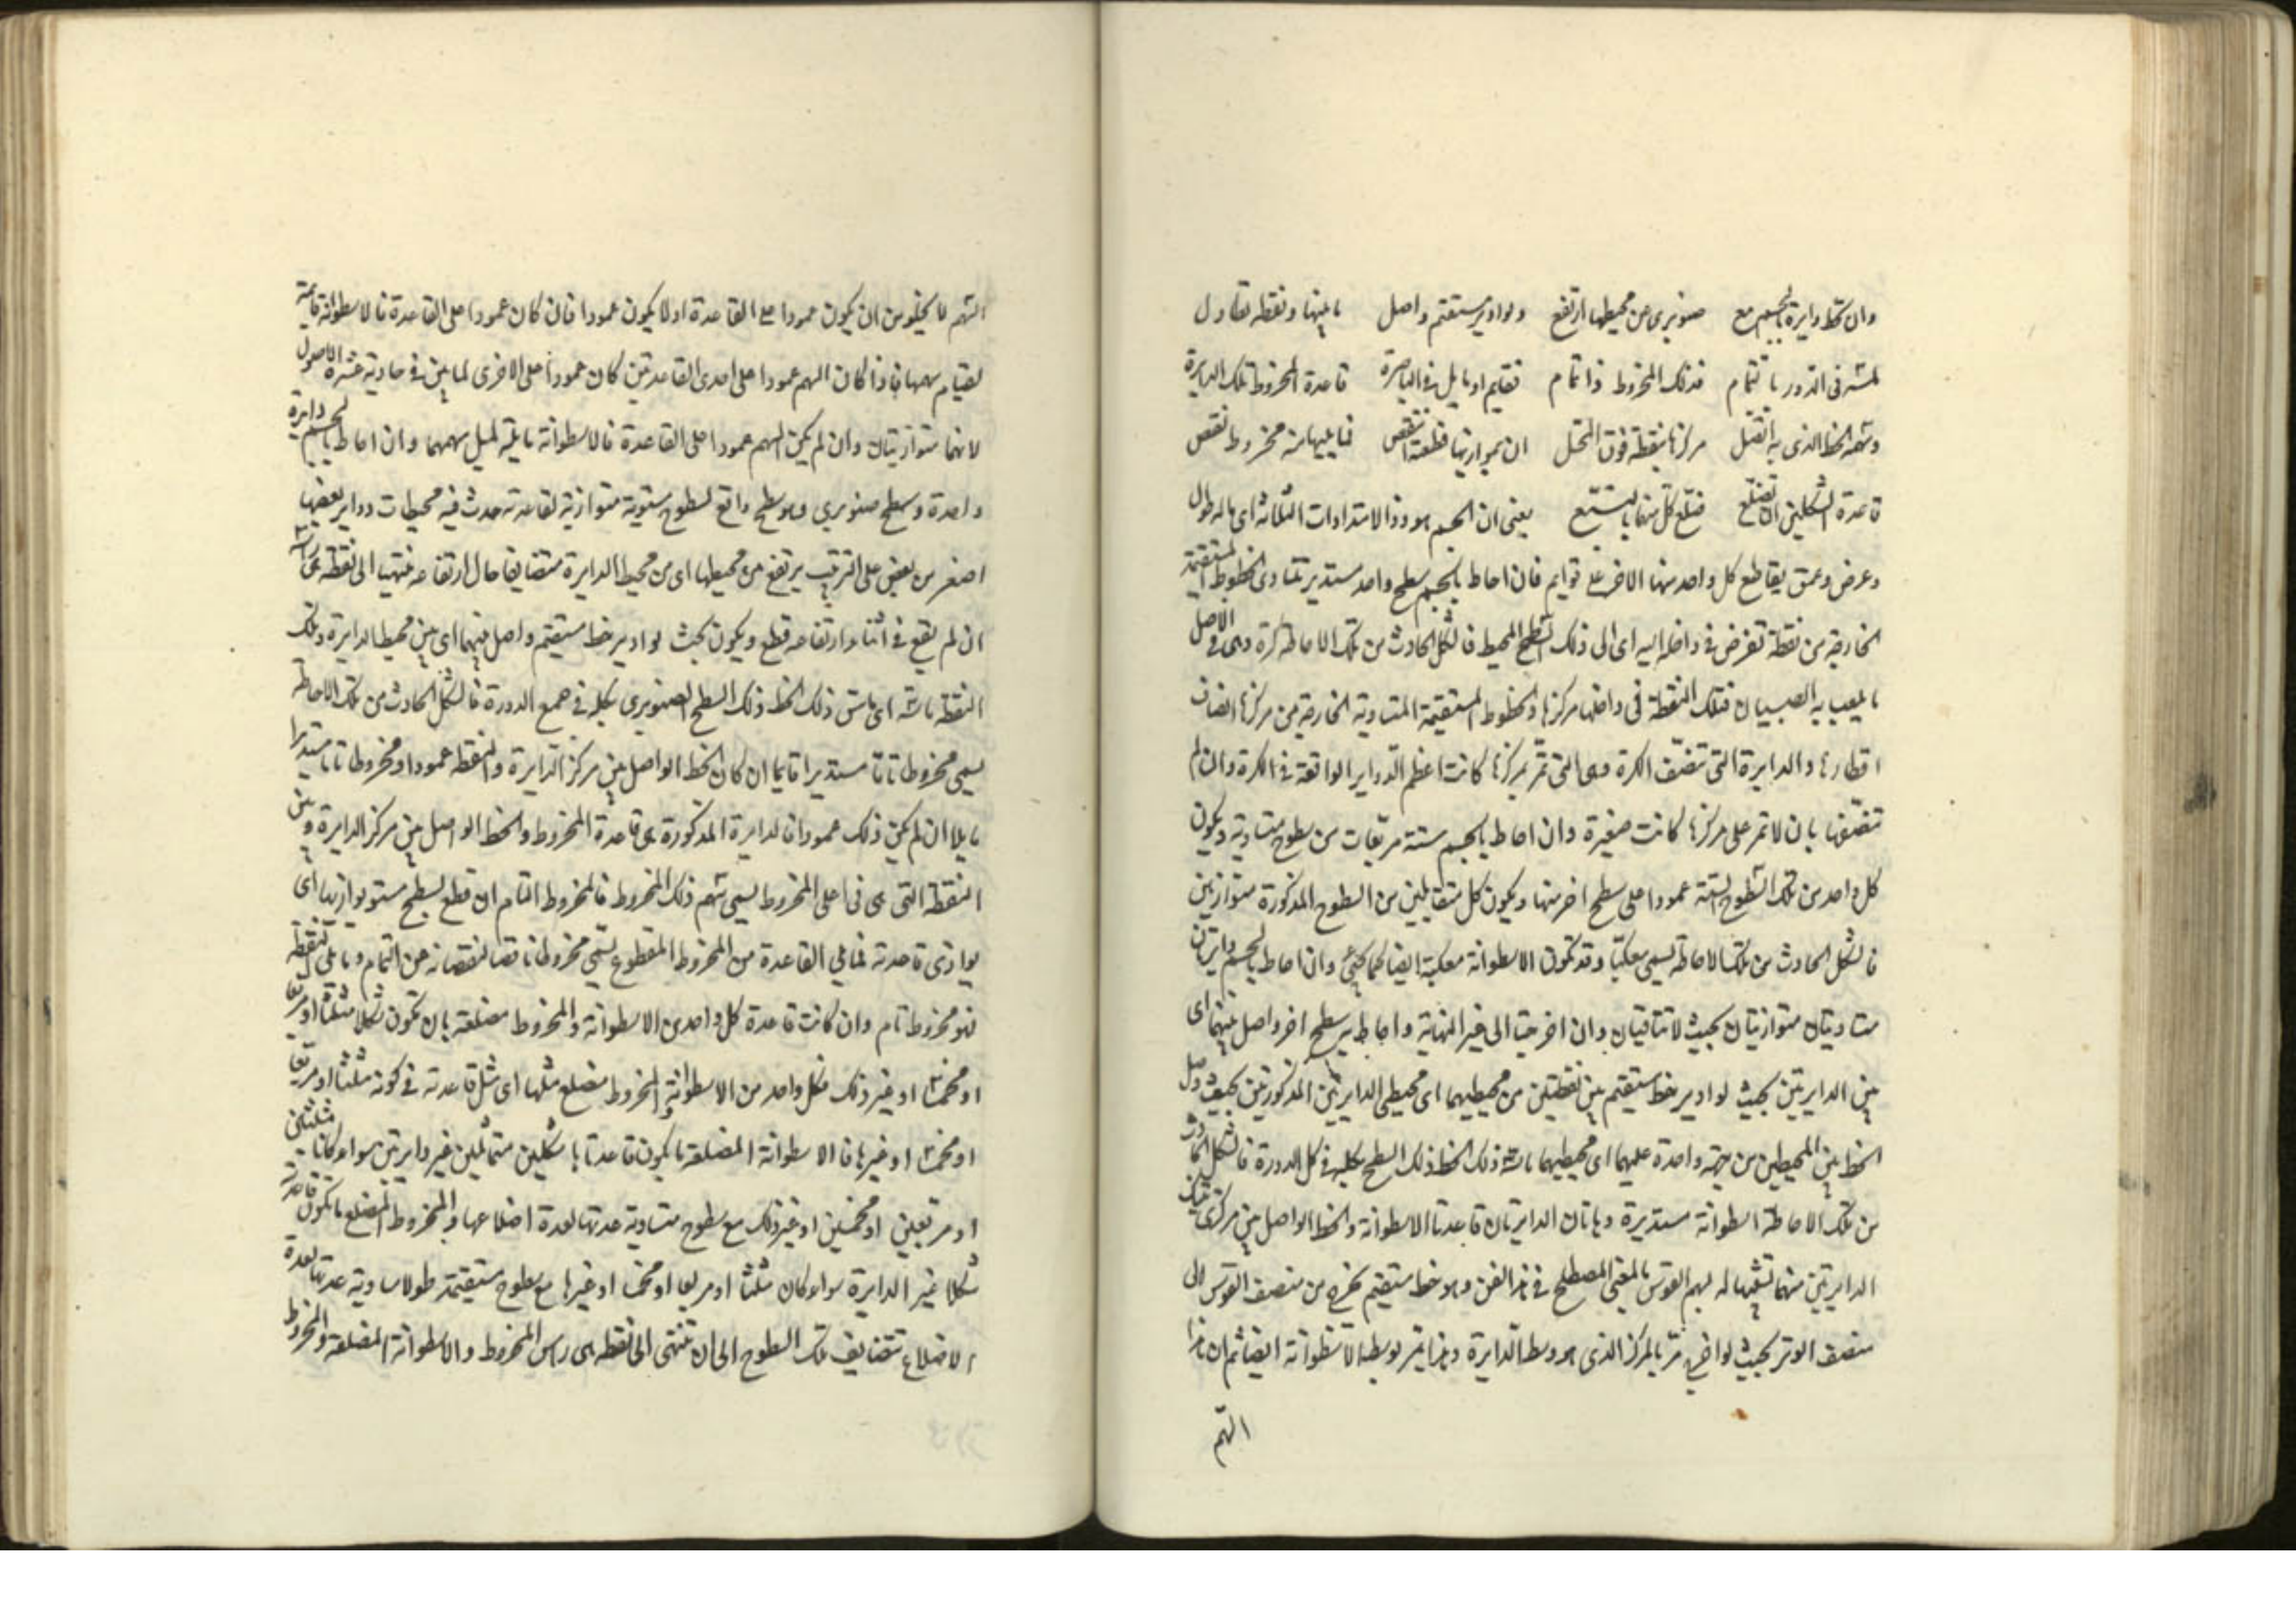 وان تحط دايرة بالجسم مع صنوبرى من محيطها ارتفع ولو ادير مستقيم واصل ما بينها ونقطة تقاول
لمسه فى الدور بالتمام فذلك المخروط ذا تمام فقايم او مايل فى الباصرة قاعدة المخروط تلك الدايرة
وسهمه الخط الذى به اتصل مركزها بنقطة فوق المحل ان بموازيها قطعته انتقص فما يليها منه مخروط نقص
قاعدة الشكلين ان تضلع فضلع كل منهما يستتبع يعنى ان الجسم هو ذو الامتدادات الثلاثة اى ماله طول
وعرض وعمق يقاطع كل واحد منها الاخر على قوايم فان احاط بالجسم سطح واحد مستدير تتساوى الخطوط المستقيمة
الخارجة من نقطة تفرض فى داخله اليه اى الى ذلك السطح المحيط فالشكل الحادث من تلك الاحاطة كرة وهى فى الاصل
ما يلعب به الصبيان فتلك النقطة فى داخلها مركزها والخطوط المستقيمة المتساوية الخارجة من مركزها انصاف
اقطارها والدايرة التى تنصف الكرة وهى التى تمر بمركزها كانت اعظم الدواير الواقعة فى الكرة وان لم
تنصفها بان لا تمر على مركزها كانت صغيرة وان احاط بالجسم ستة مربعات من سطوح متساوية ويكون
كل واحد من تلك السطوح الستة عمودا على سطح اخر منها ويكون كل متقابلين من السطوح المذكورة متوازيين
فالشكل الحادث من تلك الاحاطة يسمى مكعبا وقد تكون الاسطوانة مكعبة ايضا كما يجئ وان احاط بالجسم دايرتان
متساويتان متوازيتان بحيث لا تتلاقيان وان اخرجتا الى غير النهاية واحاط به سطح اخر واصل بينهما اى
بين الدايرتين بحيث لو ادير خط مستقيم بين نقطتين من محيطيهما اى محيطى الدايرتين المذكورتين بحيث وصل
الخط بين المحيطين من جهة واحدة عليهما اى محيطيهما ماسه ذلك الخط ذلك السطح بكليه فى كل الدورة فالشكل الحادث
من تلك الاحاطة اسطوانة مستديرة وهاتان الدايرتان قاعدتا الاسطوانة والخط الواصل بين مركزى تينك
الدايرتين سهمها تشبيها له بسهم القوس بالمعنى المصطلح فى هذا الفن وهو خط مستقيم يخرج من منتصف القوس الى
منتصف الوتر بحيث لو اخرج مر بالمركز الذى هو وسط الدايرة وهذا يمر بوسط الاسطوانة ايضا ثم ان هذا
السهم
السهم لا يخلو من ان يكون عمودا على القاعدة او لا يكون عمودا فان كان عمودا على القاعدة فالاسطوانة قايمة
لقيام سهمها فاذا كان السهم عمودا على احدى القاعدتين كان عمودا على الاخرى لما بين فى حادية عشرة الاصول
لانهما متوازيتان وان لم يكن السهم عمودا على القاعدة فالاسطوانة مايلة لميل سهمها وان احاط بالجسم دايرة
واحدة وسطح صنوبرى وهو سطح واقع لسطوح مستوية متوازية لقاعدته حدث فيه محيطات دواير بعضها
اصغر من بعض على الترتيب يرتفع من محيطها اى من محيط الدايرة متضايقا حال ارتفاعه منتهيا الى نقطة هى راسه
ان لم يقع فى اثناء ارتفاعه قطع ويكون بحيث لو ادير خط مستقيم واصل بينهما اى بين محيط الدايرة وتلك
النقطة ماسه اى ماس ذلك الخط ذلك السطح الصنوبرى بكله فى جميع الدورة فالشكل الحادث من تلك الاحاطة
يسمى مخروطا تاما مستديرا قايما ان كان الخط الواصل بين مركز الدايرة والنقطة عمودا ومخروطا تاما مستديرا
مايلا ان لم يكن ذلك عمودا فالدايرة المذكورة هى قاعدة المخروط والخط الواصل بين مركز الدايرة وبين
النقطة التى هى فى اعلى المخروط يسمى سهم ذلك المخروط فالمخروط التام ان قطع بسطح مستو يوازيها اى
يوازى قاعدته فما يلى القاعدة من المخروط المقطوع يسمى مخروطا ناقصا لنقصانه عن التمام وما يلى النقطة
فهو مخروط تام وان كانت قاعدة كل واحد من الاسطوانة والمخروط مضلعة بان تكون شكلا مثلثا او مربعا
او مخمسا او غير ذلك فكل واحد من الاسطوانة والمخروط مضلع مثلها اى مثل قاعدته فى كونه مثلثا او مربعا
او مخمسا او غيرها فالاسطوانة المضلعة ما يكون قاعدتاها شكلين متماثلين غير دايرتين سواء كانا مثلثين
او مربعين او مخمسين او غير ذلك مع سطوح متساوية عدتها لعدة اضلاعها والمخروط المضلع ما تكون قاعدته
شكلا غير الدايرة سواء كان مثلثا او مربعا او مخمسا او غيرها مع سطوح مستقيمة طولا مساوية عدتها لعدة
الاضلاع تتضايف تلك السطوح الى ان تنتهى الى نقطة هى راس المخروط والاسطوانة المضلعة والمخروط